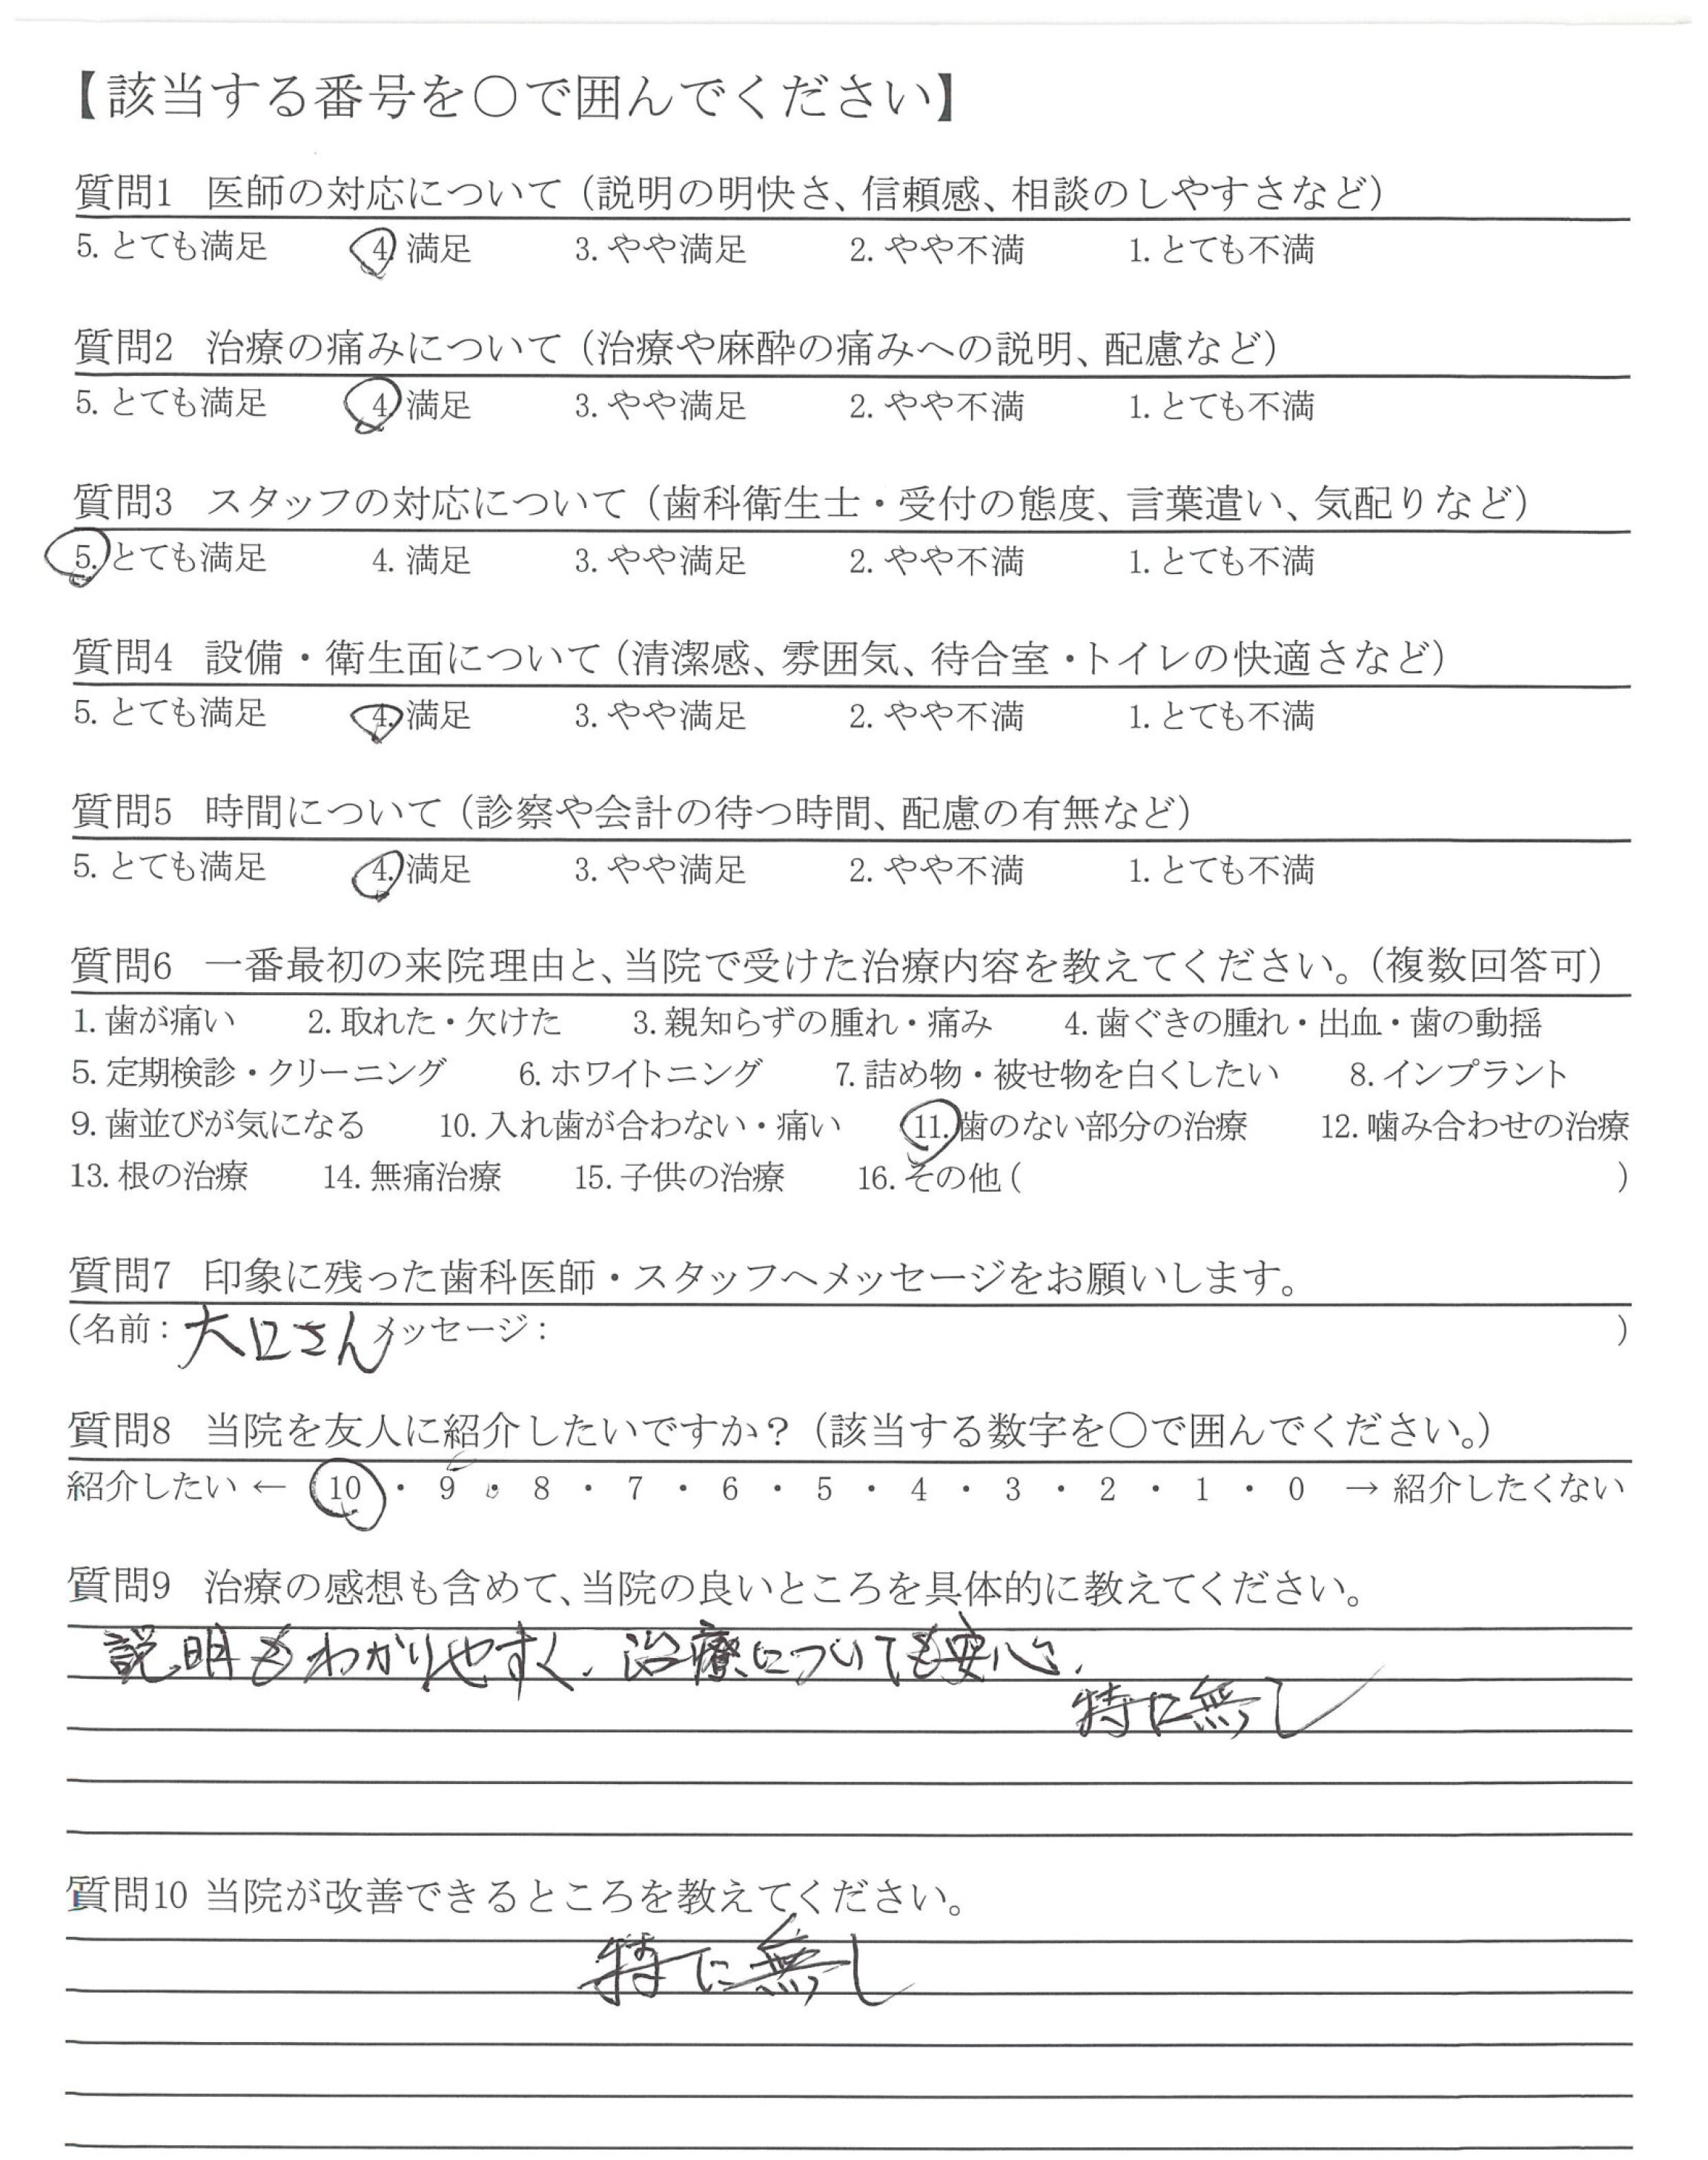 【該当する番号を○で囲んでください】
質問1 医師の対応について（説明の明快さ、信頼感、相談のしやすさなど）
5. とても満足 4. 満足 3. やや満足 2. やや不満 1. とても不満
質問2 治療の痛みについて（治療や麻酔の痛みへの説明、配慮など）
5. とても満足 4. 満足 3. やや満足 2. やや不満 1. とても不満
質問3 スタッフの対応について（歯科衛生士・受付の態度、言葉遣い、気配りなど）
5. とても満足 4. 満足 3. やや満足 2. やや不満 1. とても不満
質問4 設備・衛生面について（清潔感、雰囲気、待合室・トイレの快適さなど）
5. とても満足 4. 満足 3. やや満足 2. やや不満 1. とても不満
質問5 時間について（診察や会計の待つ時間、配慮の有無など）
5. とても満足 4. 満足 3. やや満足 2. やや不満 1. とても不満
質問6 一番最初の来院理由と、当院で受けた治療内容を教えてください。（複数回答可）
1. 歯が痛い 2. 取れた・欠けた 3. 親知らずの腫れ・痛み 4. 歯ぐきの腫れ・出血・歯の動揺
5. 定期検診・クリーニング 6. ホワイトニング 7. 詰め物・被せ物を白くしたい 8. インプラント
9. 歯並びが気になる 10. 入れ歯が合わない・痛い 11. 歯のない部分の治療 12. 噛み合わせの治療
13. 根の治療 14. 無痛治療 15. 子供の治療 16. その他（ ）
質問7 印象に残った歯科医師・スタッフへメッセージをお願いします。
（名前：大口さん メッセージ： ）
質問8 当院を友人に紹介したいですか？（該当する数字を○で囲んでください。）
紹介したい ← 10 ・ 9 ・ 8 ・ 7 ・ 6 ・ 5 ・ 4 ・ 3 ・ 2 ・ 1 ・ 0 → 紹介したくない
質問9 治療の感想も含めて、当院の良いところを具体的に教えてください。
説明もわかりやすく、治療についても安心、
特に無し
質問10 当院が改善できるところを教えてください。
特に無し